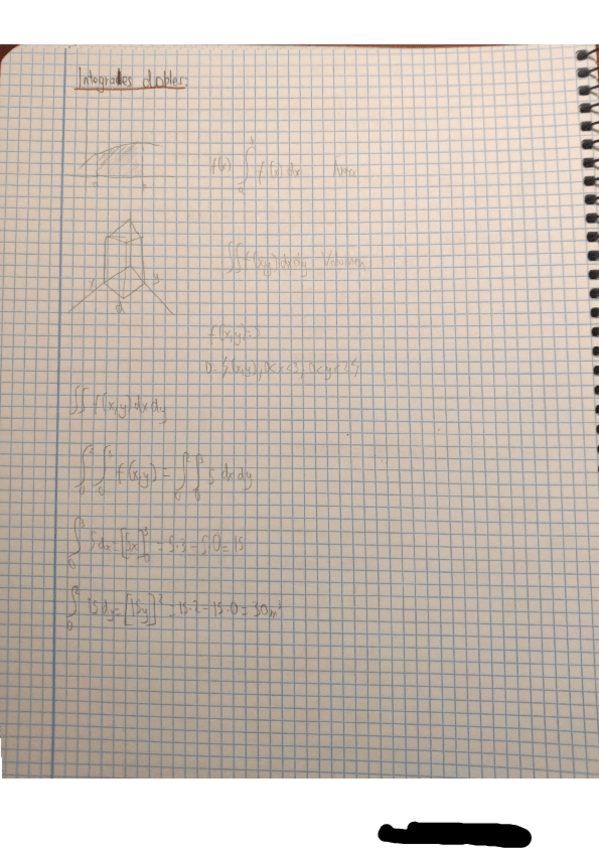 Integrales dobles:
f(x) ∫ f(x) dx Área
a b
∫∫ f(x,y) dx dy Volumen
x y
d
f(x,y)=5
D= {(x,y), 0<x<3, 0<y<2}
∫∫ f(x,y) dx dy
∫₀² ∫₀³ f(x,y) = ∫₀² ∫₀³ 5 dx dy
∫₀³ 5dx = [5x]₀³ = 5·3 - 5·0 = 15
∫₀² 15 dy = [15y]² = 15·2 - 15·0 = 30m³